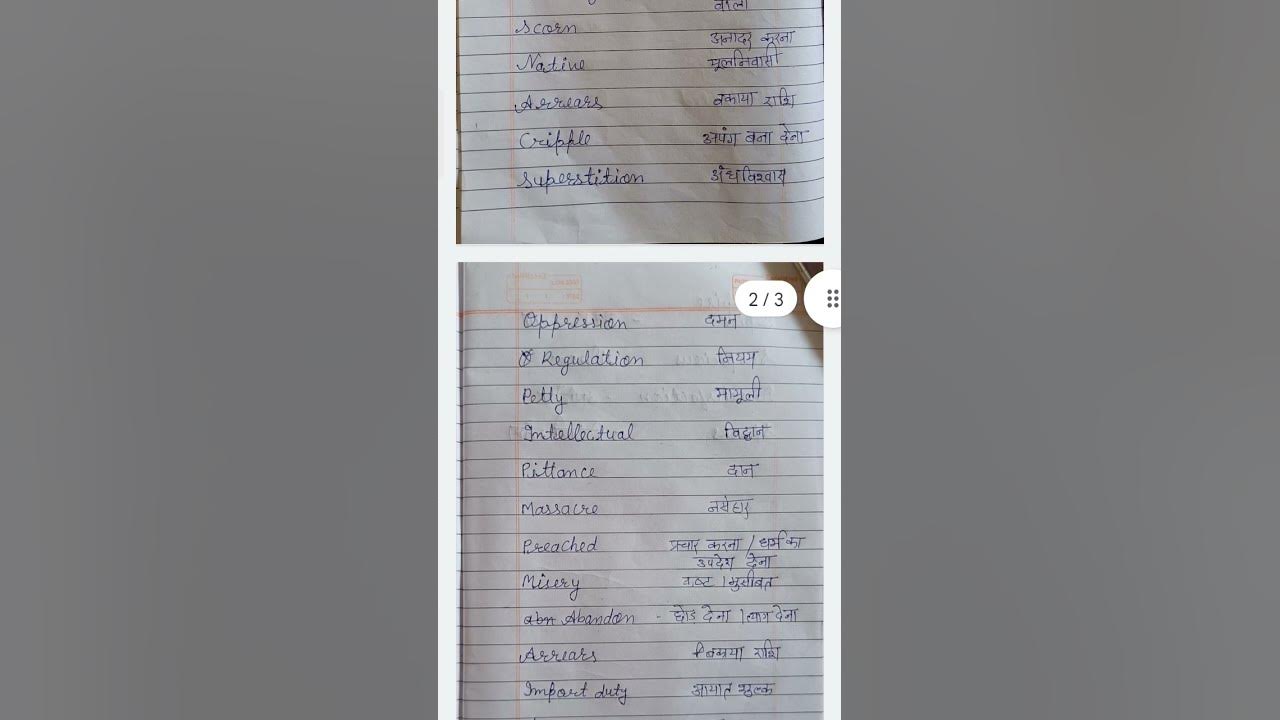 वाला
Scorn अनादर करना
Native मूलनिवासी
Arrears बकाया राशि
Cripple अपंग बना देना
Superstition अंधविश्वास
2 / 3
Oppression दमन
Regulation नियम
Petty मामूली
Intellectual विद्वान
Pittance दान
Massacre नरसंहार
Preached प्रचार करना / धर्म का
उपदेश देना
Misery कष्ट / मुसीबत
abn Abandon - छोड़ देना / त्याग देना
Arrears बकाया राशि
Import duty आयात शुल्क